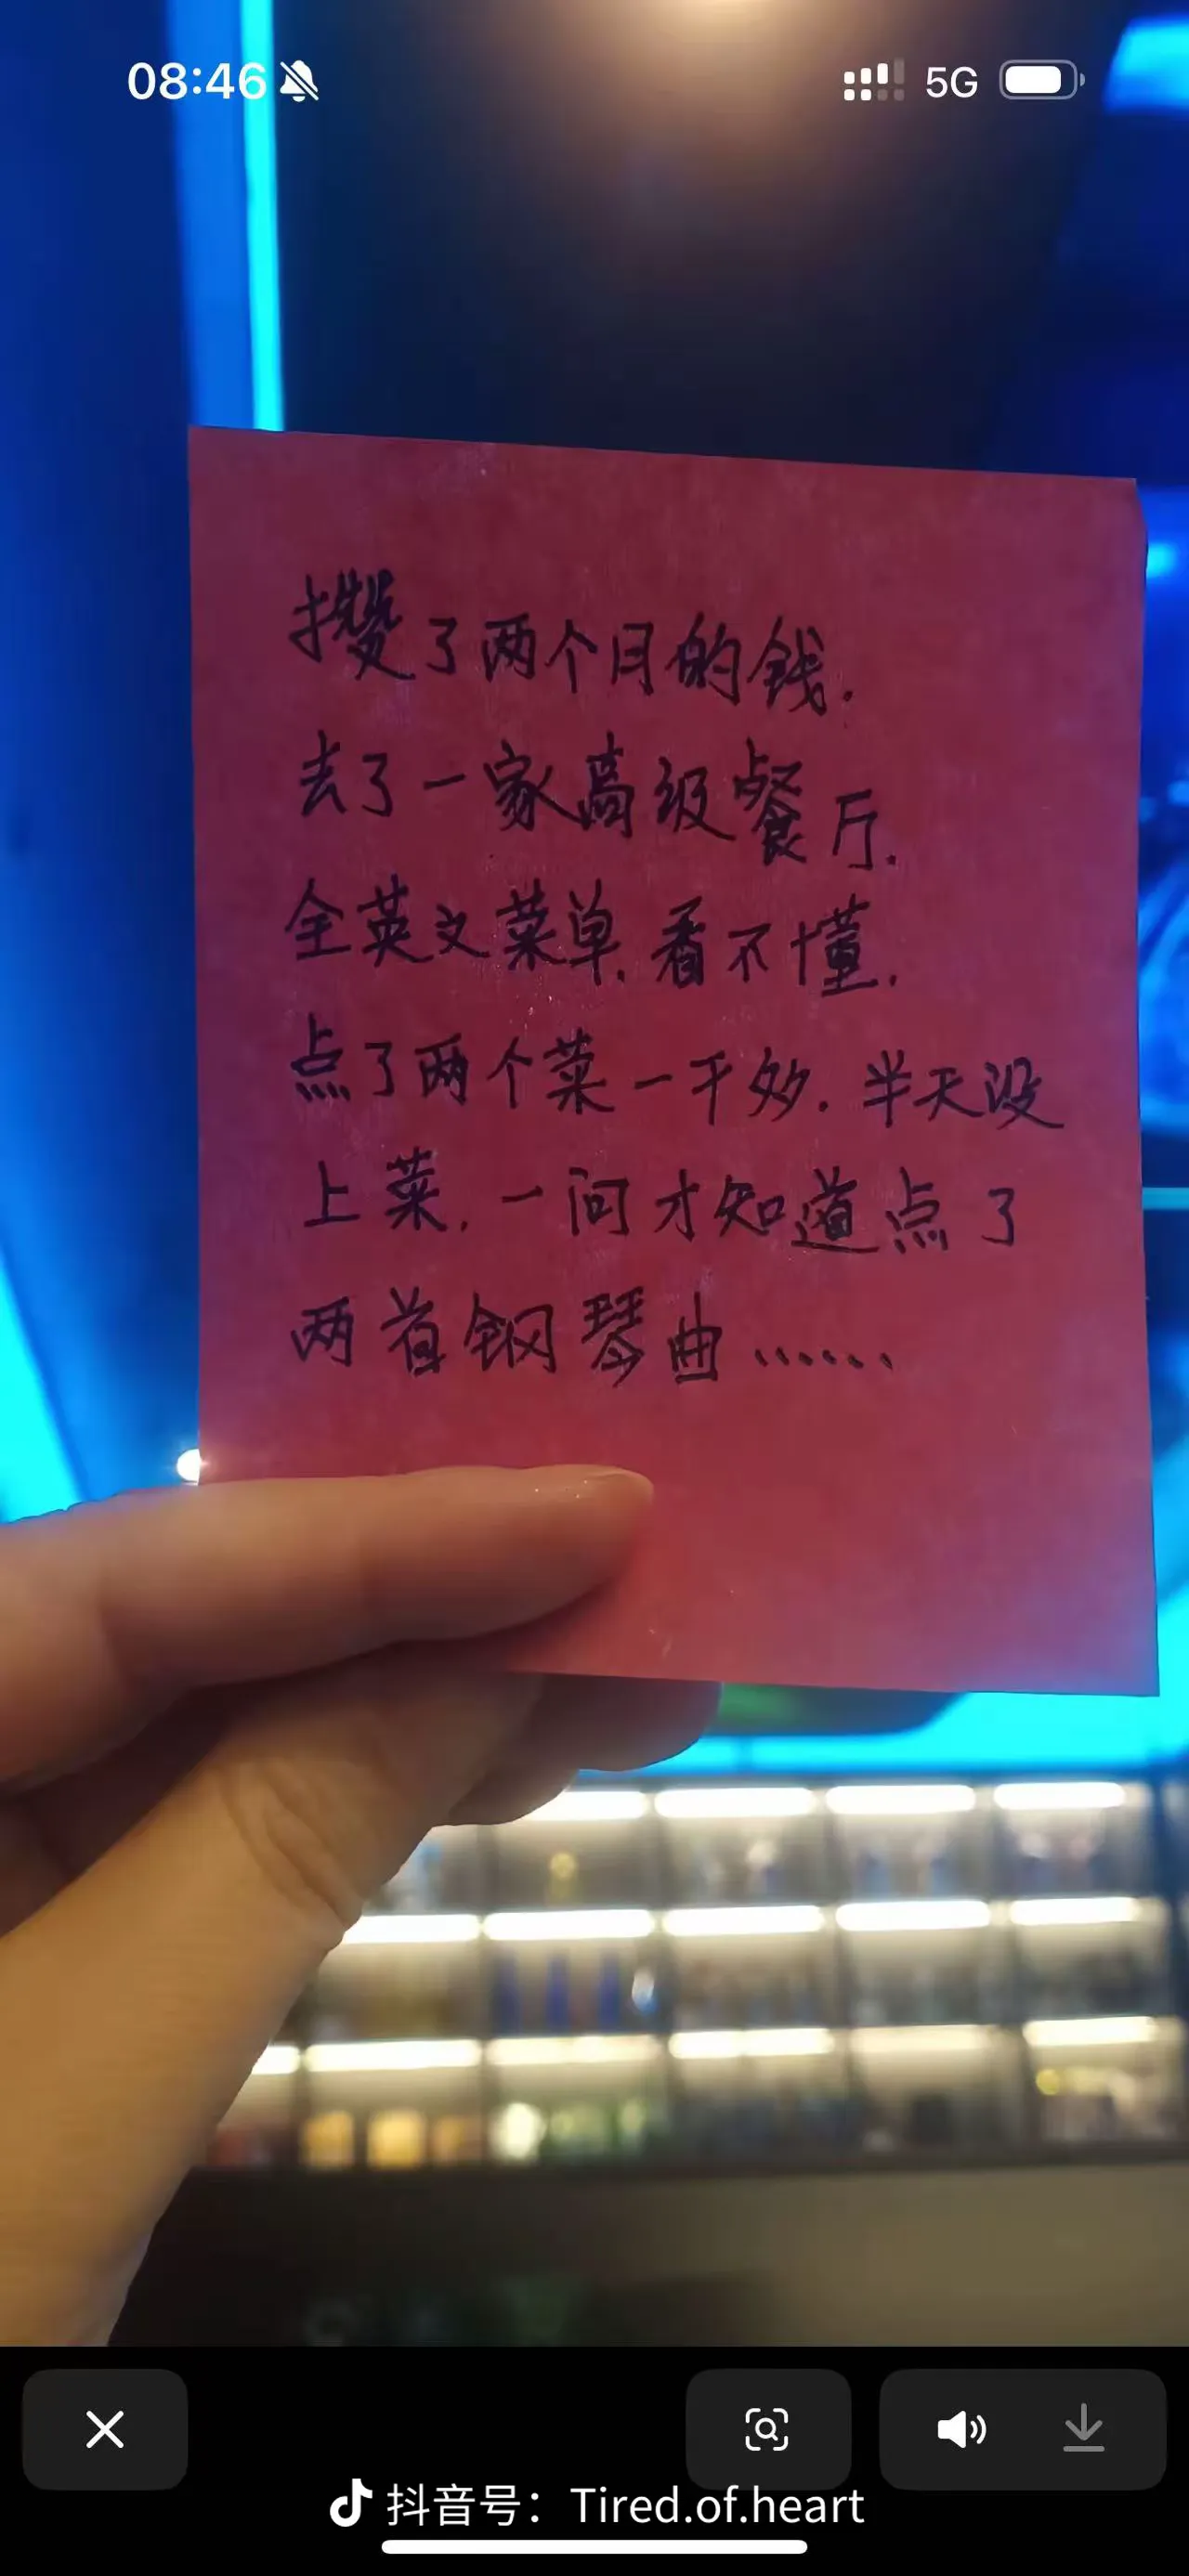 08:46 5G
攒了两个月的钱.
去了一家高级餐厅.
全英文菜单.看不懂.
点了两个菜一千多.半天没
上菜.一问才知道点了
两首钢琴曲......
抖音号：Tired.of.heart